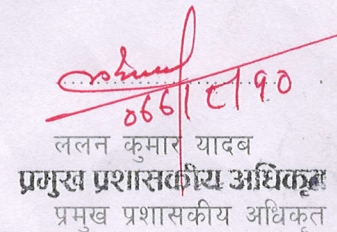 ०६६/८/१०
ललन कुमार यादब
प्रमुख प्रशासकीय अधिकृत
प्रमुख प्रशासकीय अधिकृत